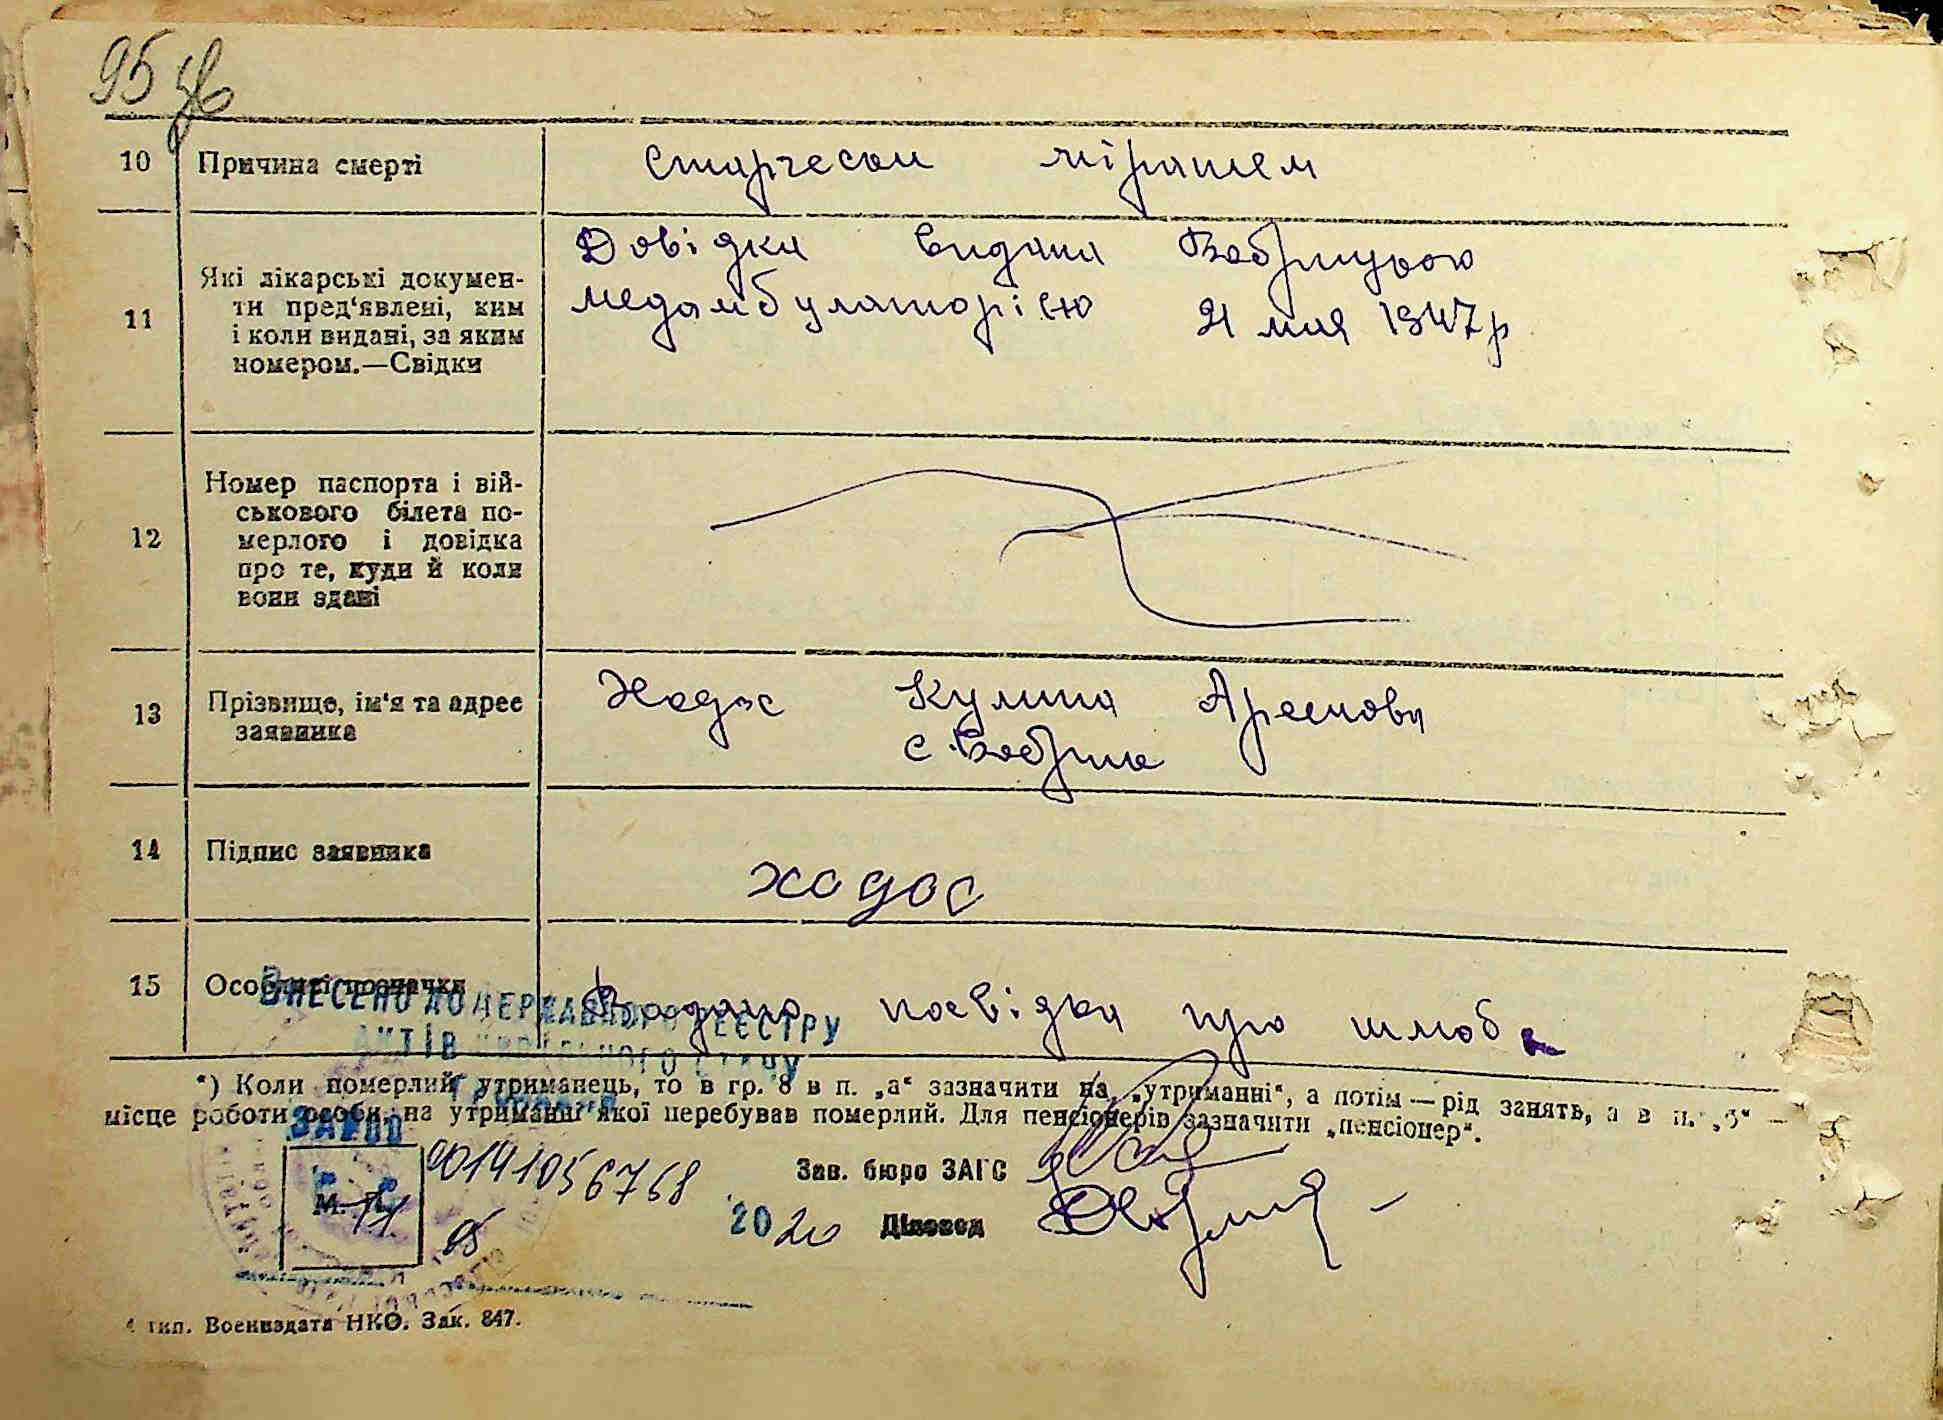 95
10 Причина смерті
11 Які лікарські докумен-
ти пред‘явлені, ким
і коли видані, за яким
номером.—Свідки
Довідка видана
медамбулаторією 21 мая 1947 р
12 Номер паспорта і вій-
ськового білета по-
мерлого і довідка
про те, куди й коли
вони здані
13 Прізвище, ім‘я та адрес
заявника
Ходос Кулина
с.
14 Підпис заявника
ходос
15 Особливі позначки
Видано посвідка про шлюб
ВНЕСЕНО ДО ДЕРЖАВНОГО РЕЄСТРУ
АКТІВ ЦИВІЛЬНОГО СТАНУ
ГРОМАДЯН
*) Коли померлий утриманець, то в гр. 8 в п. „а“ зазначити на „утриманні“, а потім — рід занять, а в п. „з“ —
місце роботи особи, на утриманні якої перебував померлий. Для пенсіонерів зазначити „пенсіонер“.
ЗА №
00141056768
Зав. бюро ЗАГС
М. П.
11
05
2020 Діловод
4 тип. Воениздата НКО. Зак. 847.